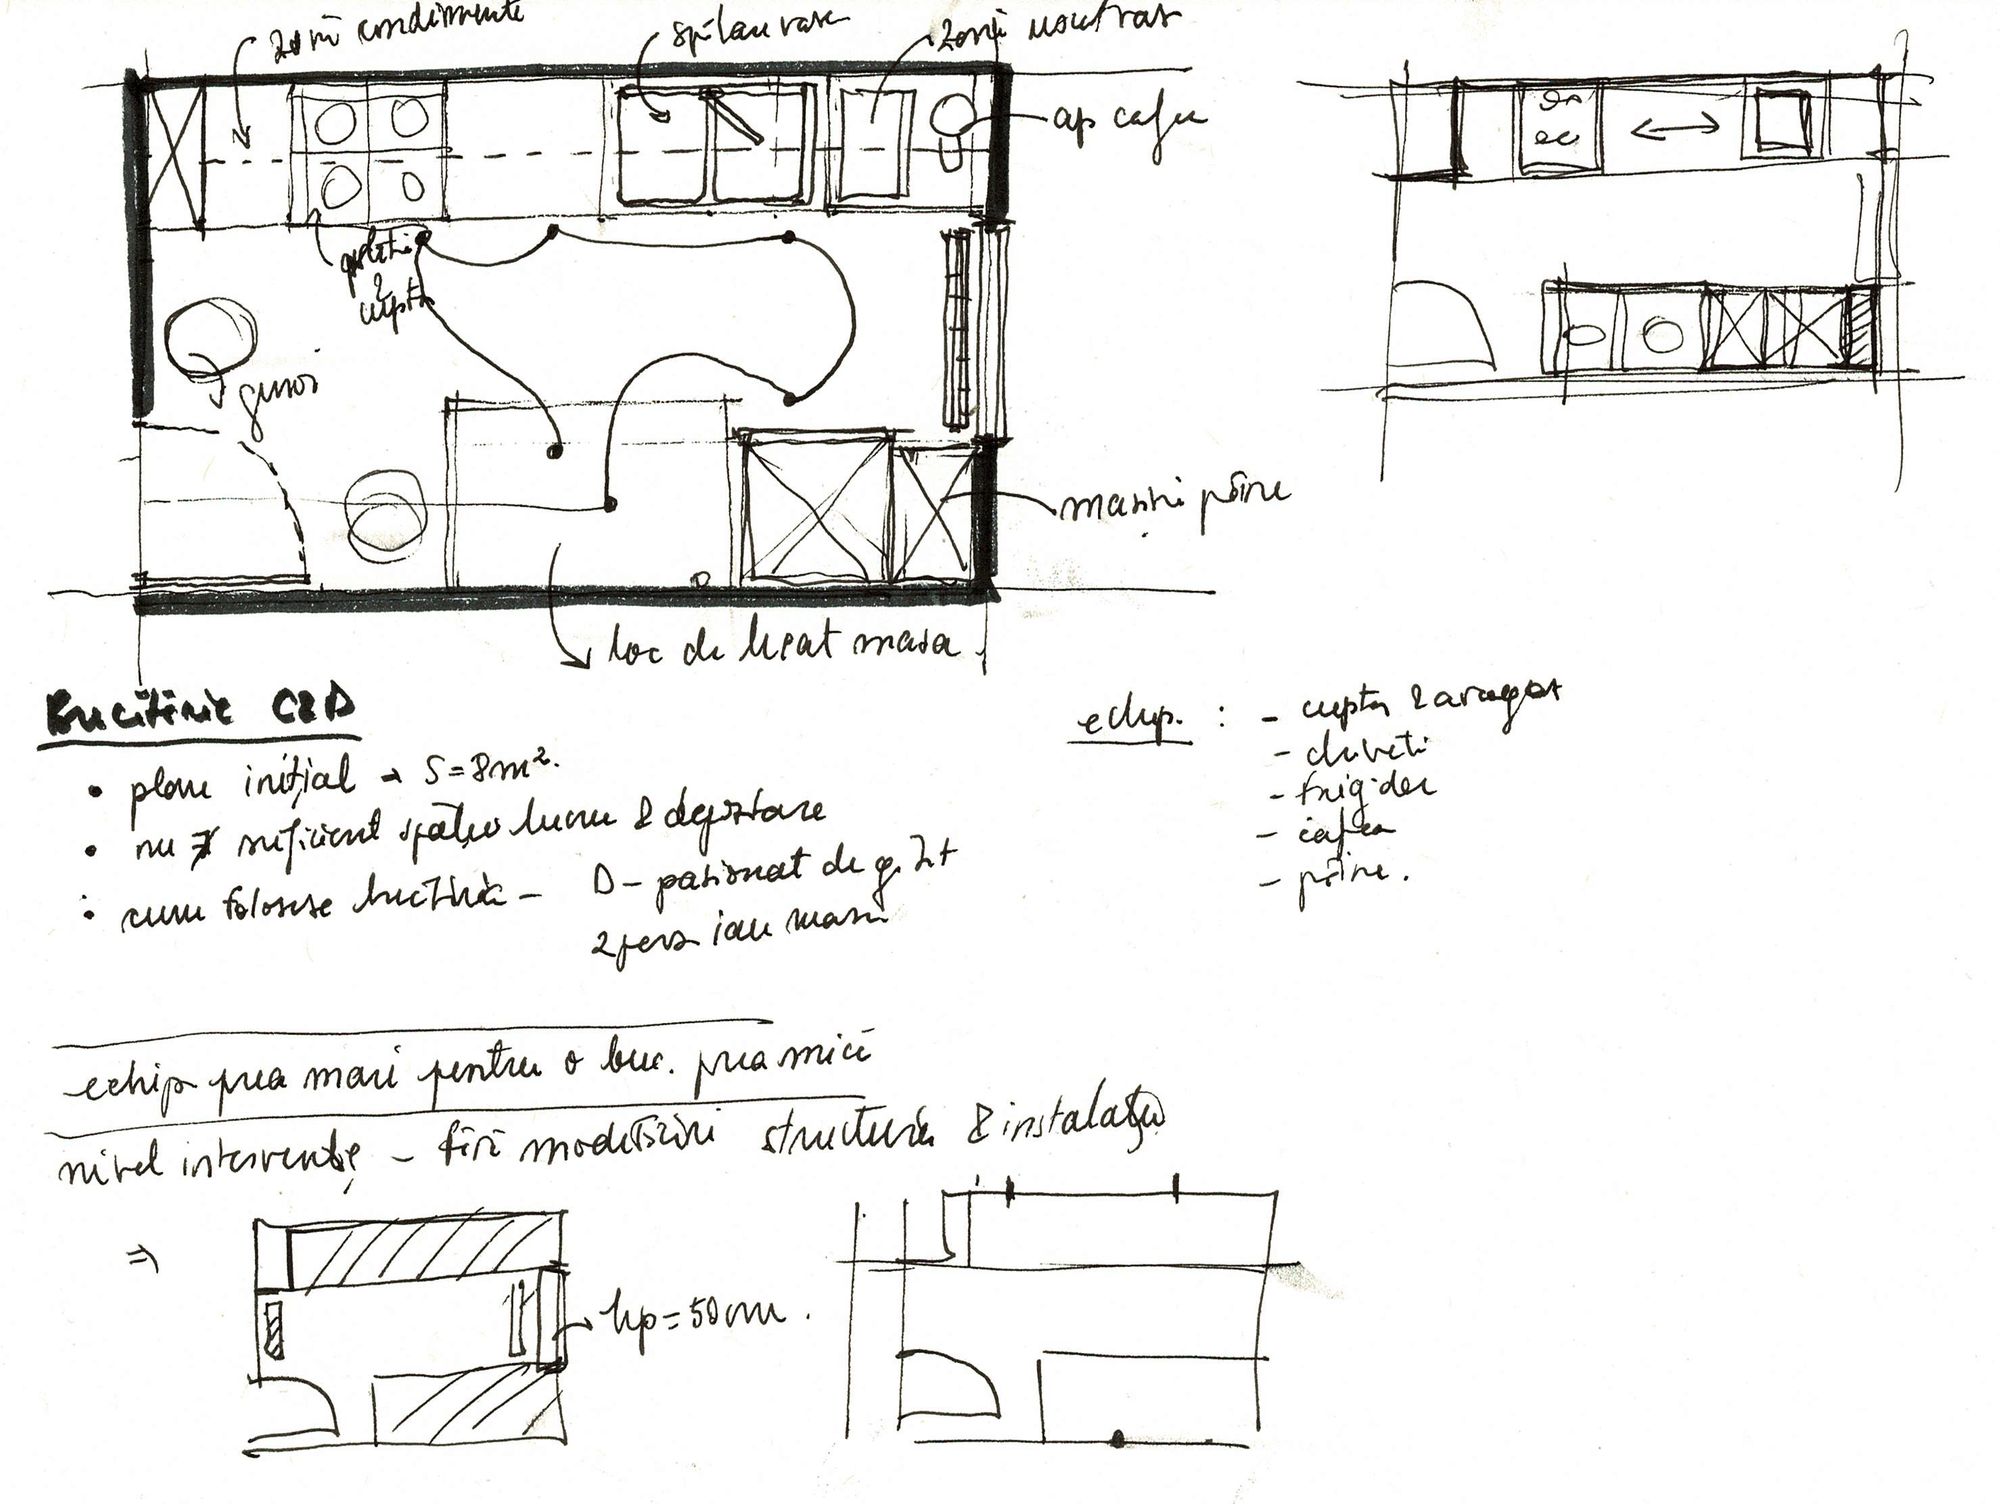 zonă condimente
spălare vase
zonă neutră
ap cafea
plită
&
cuptor
gunoi
mașină pâine
loc de luat masa
Bucătărie C&D
• plan inițial → S=8m².
• nu ∃ suficient spațiu lucru & depozitare
• cum folosesc bucătăria – D – pasionat de gătit
2 pers iau masa
echip. : – cuptor & aragaz
– chiuvetă
– frigider
– cafea
– pâine.
echip prea mari pentru o buc. prea mică
nivel intervenție – fără modificări structură & instalații
⇒
hp=50cm.